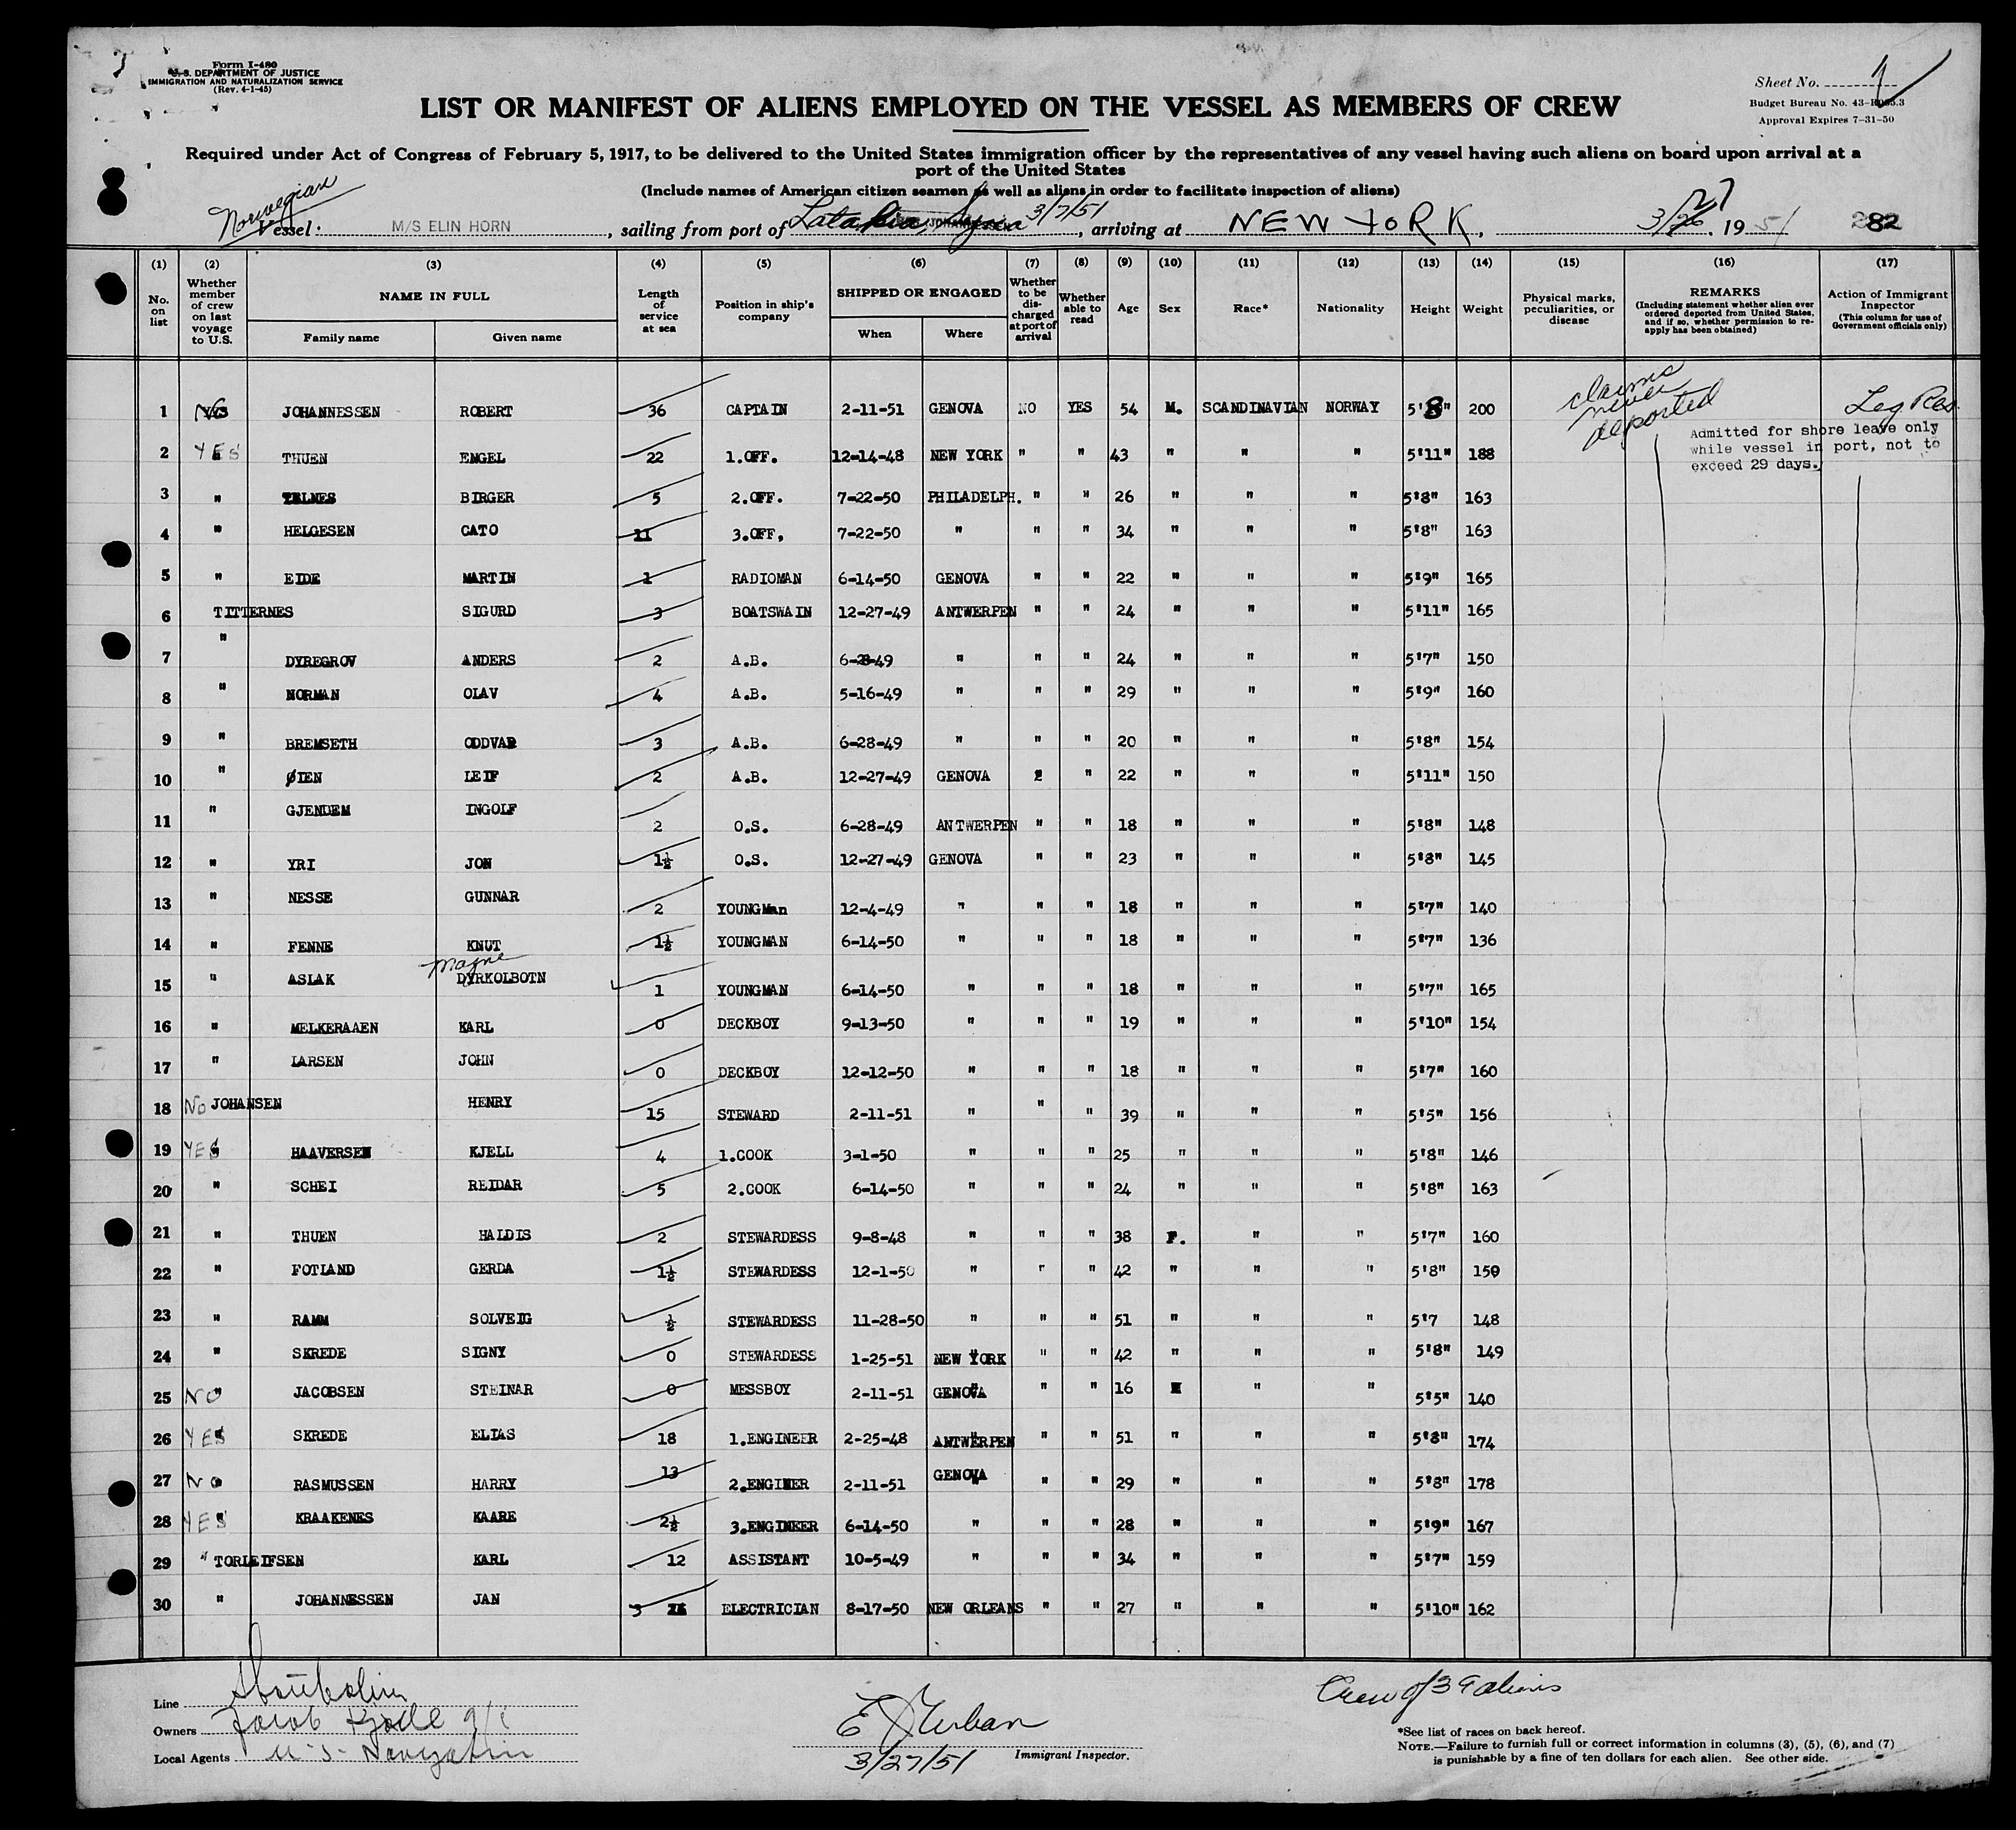 Form I-480
U. S. DEPARTMENT OF JUSTICE
IMMIGRATION AND NATURALIZATION SERVICE
(Rev. 4-1-45)
Sheet No. 1
Budget Bureau No. 43-
Approval Expires 7-31-50
LIST OR MANIFEST OF ALIENS EMPLOYED ON THE VESSEL AS MEMBERS OF CREW
Required under Act of Congress of February 5, 1917, to be delivered to the United States immigration officer by the representatives of any vessel having such aliens on board upon arrival at a
port of the United States
(Include names of American citizen seamen as well as aliens in order to facilitate inspection of aliens)
Norwegian
Vessel M/S ELIN HORN, sailing from port of Latakia, Syria 3/7/51, arriving at NEW YORK, 3/27, 1951 282
(1) (2) (3) (4) (5) (6) (7) (8) (9) (10) (11) (12) (13) (14) (15) (16) (17)
No. on list Whether member of crew on last voyage to U.S. NAME IN FULL Family name Given name Length of service at sea Position in ship's company SHIPPED OR ENGAGED When Where Whether to be discharged at port of arrival Whether able to read Age Sex Race* Nationality Height Weight Physical marks, peculiarities, or disease REMARKS (Including statement whether alien ever ordered deported from United States, and if so, whether permission to re-apply has been obtained) Action of Immigrant Inspector (This column for use of Government officials only)
1 NO JOHANNESSEN ROBERT 36 CAPTAIN 2-11-51 GENOVA NO YES 54 M. SCANDINAVIAN NORWAY 5'8" 200 claims never deported Leg Res
Admitted for shore leave only
while vessel in port, not to
exceed 29 days.
2 YES THUEN ENGEL 22 1.OFF. 12-14-48 NEW YORK " " 43 " " " 5'11" 188
3 " TELNES BIRGER 5 2.OFF. 7-22-50 PHILADELPH. " " 26 " " " 5'8" 163
4 " HELGESEN CATO 11 3.OFF, 7-22-50 " " " 34 " " " 5'8" 163
5 " EIDE MARTIN 1 RADIOMAN 6-14-50 GENOVA " " 22 " " " 5'9" 165
6 TITTERNES SIGURD 3 BOATSWAIN 12-27-49 ANTWERPEN " " 24 " " " 5'11" 165
7 " DYREGROV ANDERS 2 A.B. 6-28-49 " " " 24 " " " 5'7" 150
8 " NORMAN OLAV 4 A.B. 5-16-49 " " " 29 " " " 5'9" 160
9 " BREMSETH ODDVAR 3 A.B. 6-28-49 " " " 20 " " " 5'8" 154
10 " ØIEN LEIF 2 A.B. 12-27-49 GENOVA " " 22 " " " 5'11" 150
11 " GJENDEM INGOLF 2 O.S. 6-28-49 ANTWERPEN " " 18 " " " 5'8" 148
12 " YRI JON 1½ O.S. 12-27-49 GENOVA " " 23 " " " 5'8" 145
13 " NESSE GUNNAR 2 YOUNGMan 12-4-49 " " " 18 " " " 5'7" 140
14 " FENNE KNUT 1½ YOUNGMAN 6-14-50 " " " 18 " " " 5'7" 136
15 " ASLAK Magne DYRKOLBOTN 1 YOUNGMAN 6-14-50 " " " 18 " " " 5'7" 165
16 " MELKERAAEN KARL 0 DECKBOY 9-13-50 " " " 19 " " " 5'10" 154
17 " LARSEN JOHN 0 DECKBOY 12-12-50 " " " 18 " " " 5'7" 160
18 No JOHANSEN HENRY 15 STEWARD 2-11-51 " " " 39 " " " 5'5" 156
19 YES HAAVERSEN KJELL 4 1.COOK 3-1-50 " " " 25 " " " 5'8" 146
20 " SCHEI REIDAR 5 2.COOK 6-14-50 " " " 24 " " " 5'8" 163
21 " THUEN HALDIS 2 STEWARDESS 9-8-48 " " " 38 F. " " 5'7" 160
22 " FOTLAND GERDA 1½ STEWARDESS 12-1-50 " " " 42 " " " 5'8" 150
23 " RAMM SOLVEIG ½ STEWARDESS 11-28-50 " " " 51 " " " 5'7 148
24 " SKREDE SIGNY 0 STEWARDESS 1-25-51 NEW YORK " " 42 " " " 5'8" 149
25 NO JACOBSEN STEINAR 0 MESSBOY 2-11-51 GENOVA " " 16 M " " 5'5" 140
26 YES SKREDE ELIAS 18 1.ENGINEER 2-25-48 ANTWERPEN " " 51 " " " 5'8" 174
27 No RASMUSSEN HARRY 13 2.ENGINEER 2-11-51 GENOVA " " 29 " " " 5'8" 178
28 YES KRAAKENES KAARE 2½ 3.ENGINEER 6-14-50 " " " 28 " " " 5'9" 167
29 " TORLEIFSEN KARL 12 ASSISTANT 10-5-49 " " " 34 " " " 5'7" 159
30 " JOHANNESSEN JAN 3 ELECTRICIAN 8-17-50 NEW ORLEANS " " 27 " " " 5'10" 162
Line
Owners Jacob Kjode A/S
Local Agents U.S. Navigation
E Urban
3/27/51 Immigrant Inspector.
Crew of 39 aliens
*See list of races on back hereof.
NOTE.—Failure to furnish full or correct information in columns (3), (5), (6), and (7)
is punishable by a fine of ten dollars for each alien. See other side.